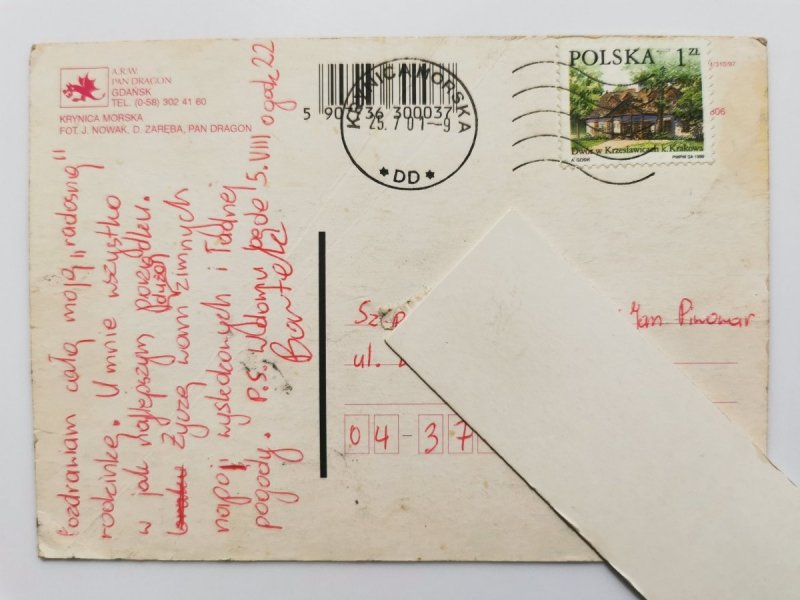 A.R.W.
PAN DRAGON
GDAŃSK
TEL. (0-58) 302 41 60
KRYNICA MORSKA
FOT. J. NOWAK, D. ZARĘBA, PAN DRAGON
5 907236 300037
KRYNICA MORSKA
25.7.01-9
*DD*
POLSKA 1 ZŁ
Dwór w Krzesławicach k. Krakowa
PWPW SA 1999
Pozdrawiam całą moją „radosną”
rodzinkę. U mnie wszystko
w jak najlepszym porządku.
Życzę wam dużo zimnych
napoji wysłodzonych i ładnej
pogody. P.S. W domu będę 5.VIII o godz 22
Bartek
Jan Piwowar
ul.
04-37